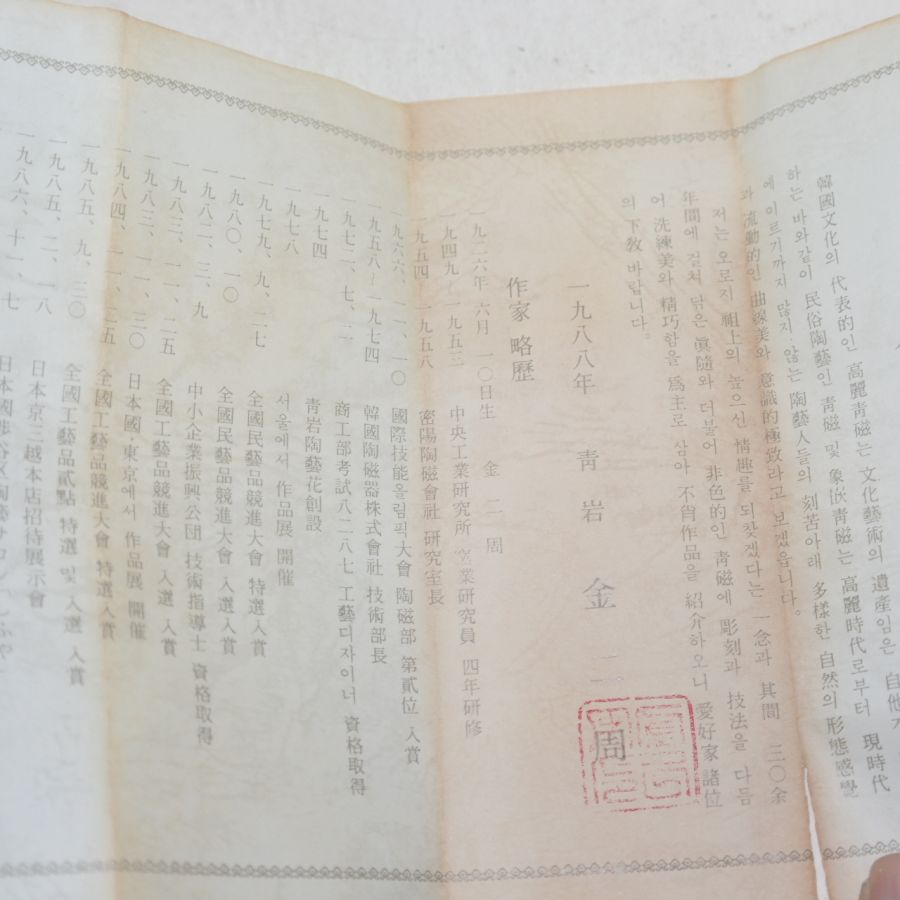 韓國文化의 代表的인 高麗靑磁는 文化藝術의 遺産임은 自他가
하는 바와같이 民俗陶藝인 靑磁 및 象嵌靑磁는 高麗時代로부터 現時代
에 이르기까지 많지 않는 陶藝人들의 刻苦아래 多樣한 自然의 形態感覺
과 流動的인 曲線美와 意識的極致라고 보겠읍니다.
저는 오로지 祖上의 높으신 情趣를 되찾겠다는 一念과 其間 三〇余
年間에 걸쳐 닦은 眞隨와 더불어 非色的인 靑磁에 彫刻과 技法을 다듬
어 洗練美와 精巧함을 爲主로 삼아 不肖作品을 紹介하오니 愛好家諸位
의 下敎 바랍니다.
一九八八年 靑岩 金二周
作家 略歷
一九二六年 六月 一〇日生 金二周
一九四九~一九五三 中央工業研究所 窯業研究員 四年研修
一九五四~一九五八 密陽陶磁會社 研究室長
一九六六、一一、一〇 國際技能올림픽大會 陶磁部 第貳位 入賞
一九五八~一九七四 韓國陶磁器株式會社 技術部長
一九七二、七、二一 商工部考試八二八七 工藝디자이너 資格取得
一九七四 靑岩陶藝花創設
一九七八 서울에서 作品展 開催
一九七九、九、二七 全國民藝品競進大會 特選入賞
一九八〇、一〇 全國民藝品競進大會 入選入賞
一九八二、三、九 中小企業振興公団 技術指導士 資格取得
一九八三、一一、二五 全國工藝品競進大會 入選 入賞
一九八三、一一、三〇 日本國・東京에서 作品展 開催
一九八四、一一、二五 全國工藝品競進大會 特選入賞
一九八五、九、三〇 全國工藝品貳點 特選 및 入選 入賞
一九八五、二、一八 日本京三越本店招待展示會
一九八六、十一、七 日本國渋谷区陶藝サロン